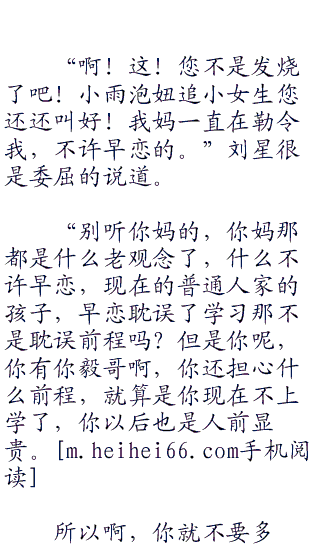 “啊！这！您不是发烧
了吧！小雨泡妞追小女生您
还还叫好！我妈一直在勒令
我，不许早恋的。”刘星很
是委屈的说道。
“别听你妈的，你妈那
都是什么老观念了，什么不
许早恋，现在的普通人家的
孩子，早恋耽误了学习那不
是耽误前程吗？但是你呢，
你有你毅哥啊，你还担心什
么前程，就算是你现在不上
学了，你以后也是人前显
贵。[m.heihei66.com手机阅
读]
所以啊，你就不要多